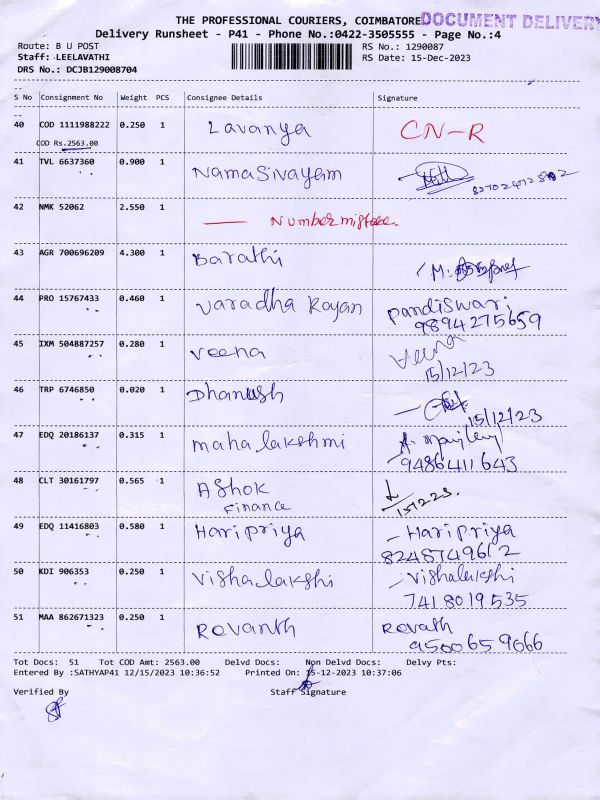 THE PROFESSIONAL COURIERS, COIMBATORE DOCUMENT DELIVERY
Delivery Runsheet - P41 - Phone No.:0422-3505555 - Page No.:4
Route: B U POST RS No.: 1290087
Staff: LEELAVATHI RS Date: 15-Dec-2023
DRS No.: DCJB129008704
S No Consignment No Weight PCS Consignee Details Signature
40 COD 1111988222 0.250 1 Lavanya CN-R
COD Rs.2563.00
41 TVL 6637360 0.900 1 Namasivayam
42 NMK 52062 2.550 1 Number mistake.
43 AGR 700696209 4.300 1 Barathi
44 PRO 15767433 0.460 1 Varadha Rajan Pandiswari
9894275659
45 IXM 504887257 0.280 1 Veena Veena
15/12/23
46 TRP 6746850 0.020 1 Dhanush
15/12/23
47 EDQ 20186137 0.315 1 maha lakshmi
9486411643
48 CLT 30161797 0.565 1 Ashok
Finance
49 EDQ 11416803 0.580 1 Haripriya - Haripriya
8248749612
50 KDI 906353 0.250 1 Vishalakshi - Vishalakshi
7418019535
51 MAA 862671323 0.250 1 Revanth Revath
9500659066
Tot Docs: 51 Tot COD Amt: 2563.00 Delvd Docs: Non Delvd Docs: Delvy Pts:
Entered By :SATHYAP41 12/15/2023 10:36:52 Printed On: 15-12-2023 10:37:06
Verified By Staff Signature